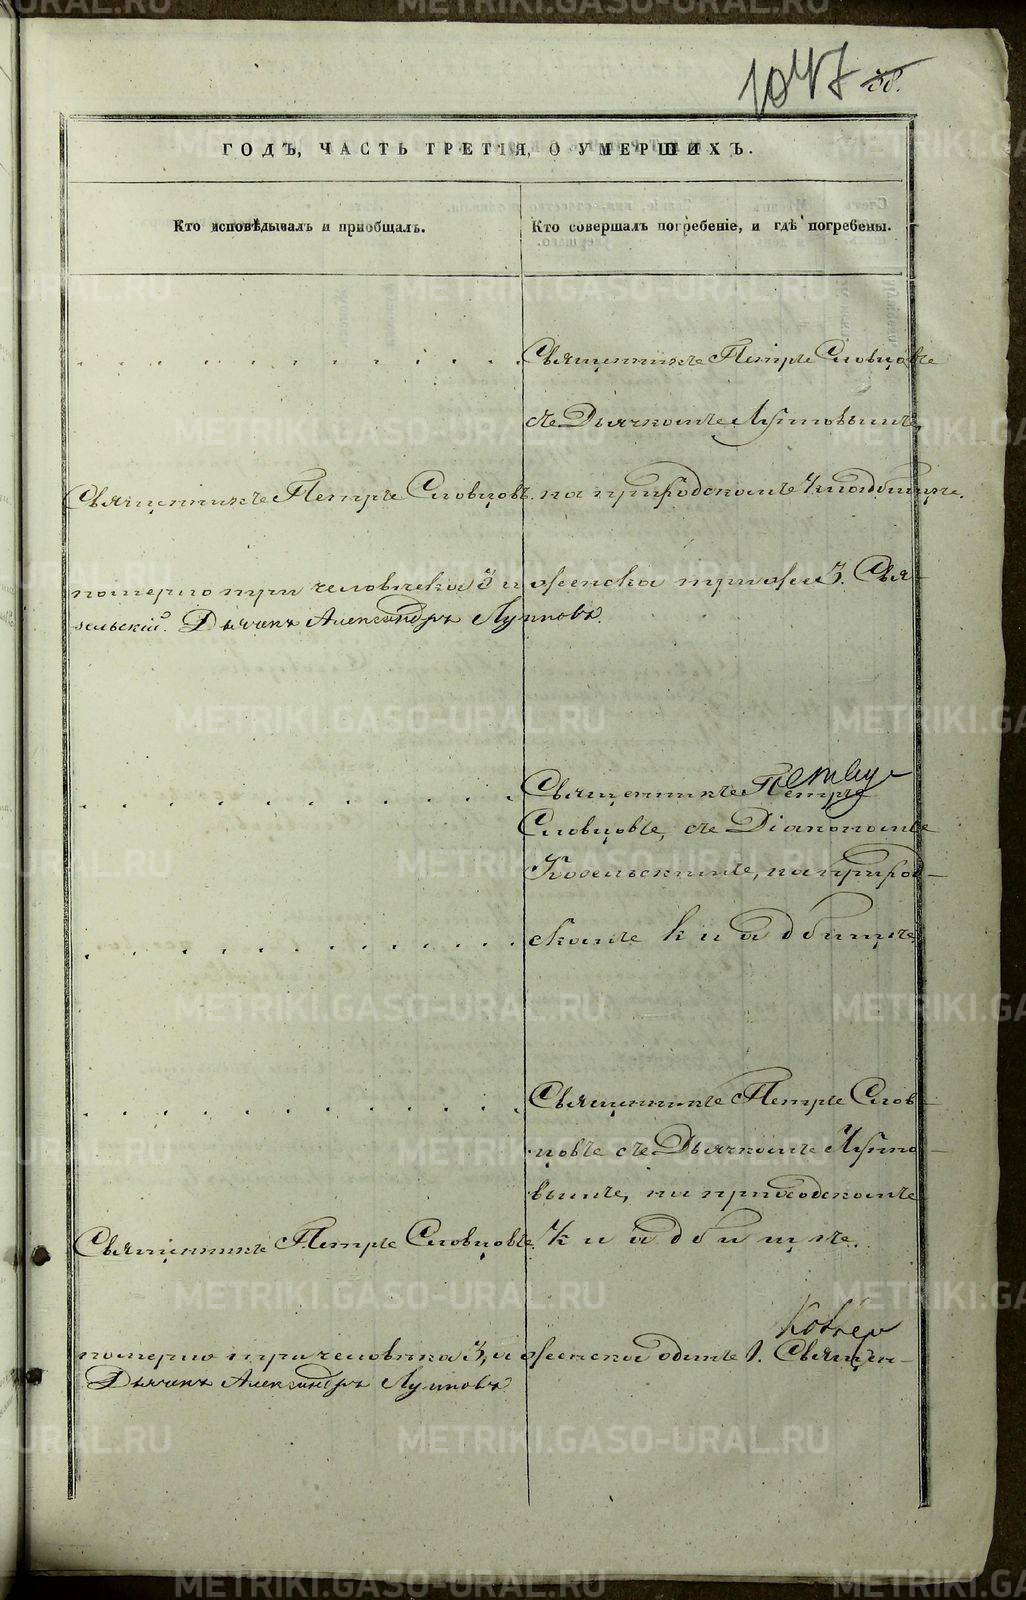 1047 58.
ГОДЪ, ЧАСТЬ ТРЕТІЯ, О УМЕРШИХЪ.
Кто исповѣдывалъ и пріобщалъ.
Кто совершалъ погребеніе, и гдѣ погребены.
Священникъ Петръ Словцовъ
съ Дьячкомъ Лупповымъ,
Священникъ Петръ Словцовъ. на приходскомъ кладбищѣ.
померло три человѣка 3 и женска три же 3. Свя-
зельскій. Дьячекъ Александръ Лупповъ.
Священникъ Петръ
Словцовъ, съ Діакономъ
Козельскимъ, на приход-
скомъ кладбищѣ
Священникъ Петръ Слов-
цовъ съ Дьячкомъ Луппо-
вымъ, на приходскомъ
Священникъ Петръ Словцовъ. кладбищѣ.
померло три человѣка 3, и женска одинъ 1. Священ-
Дьячекъ Александръ Лупповъ
METRIKI.GASO-URAL.RU